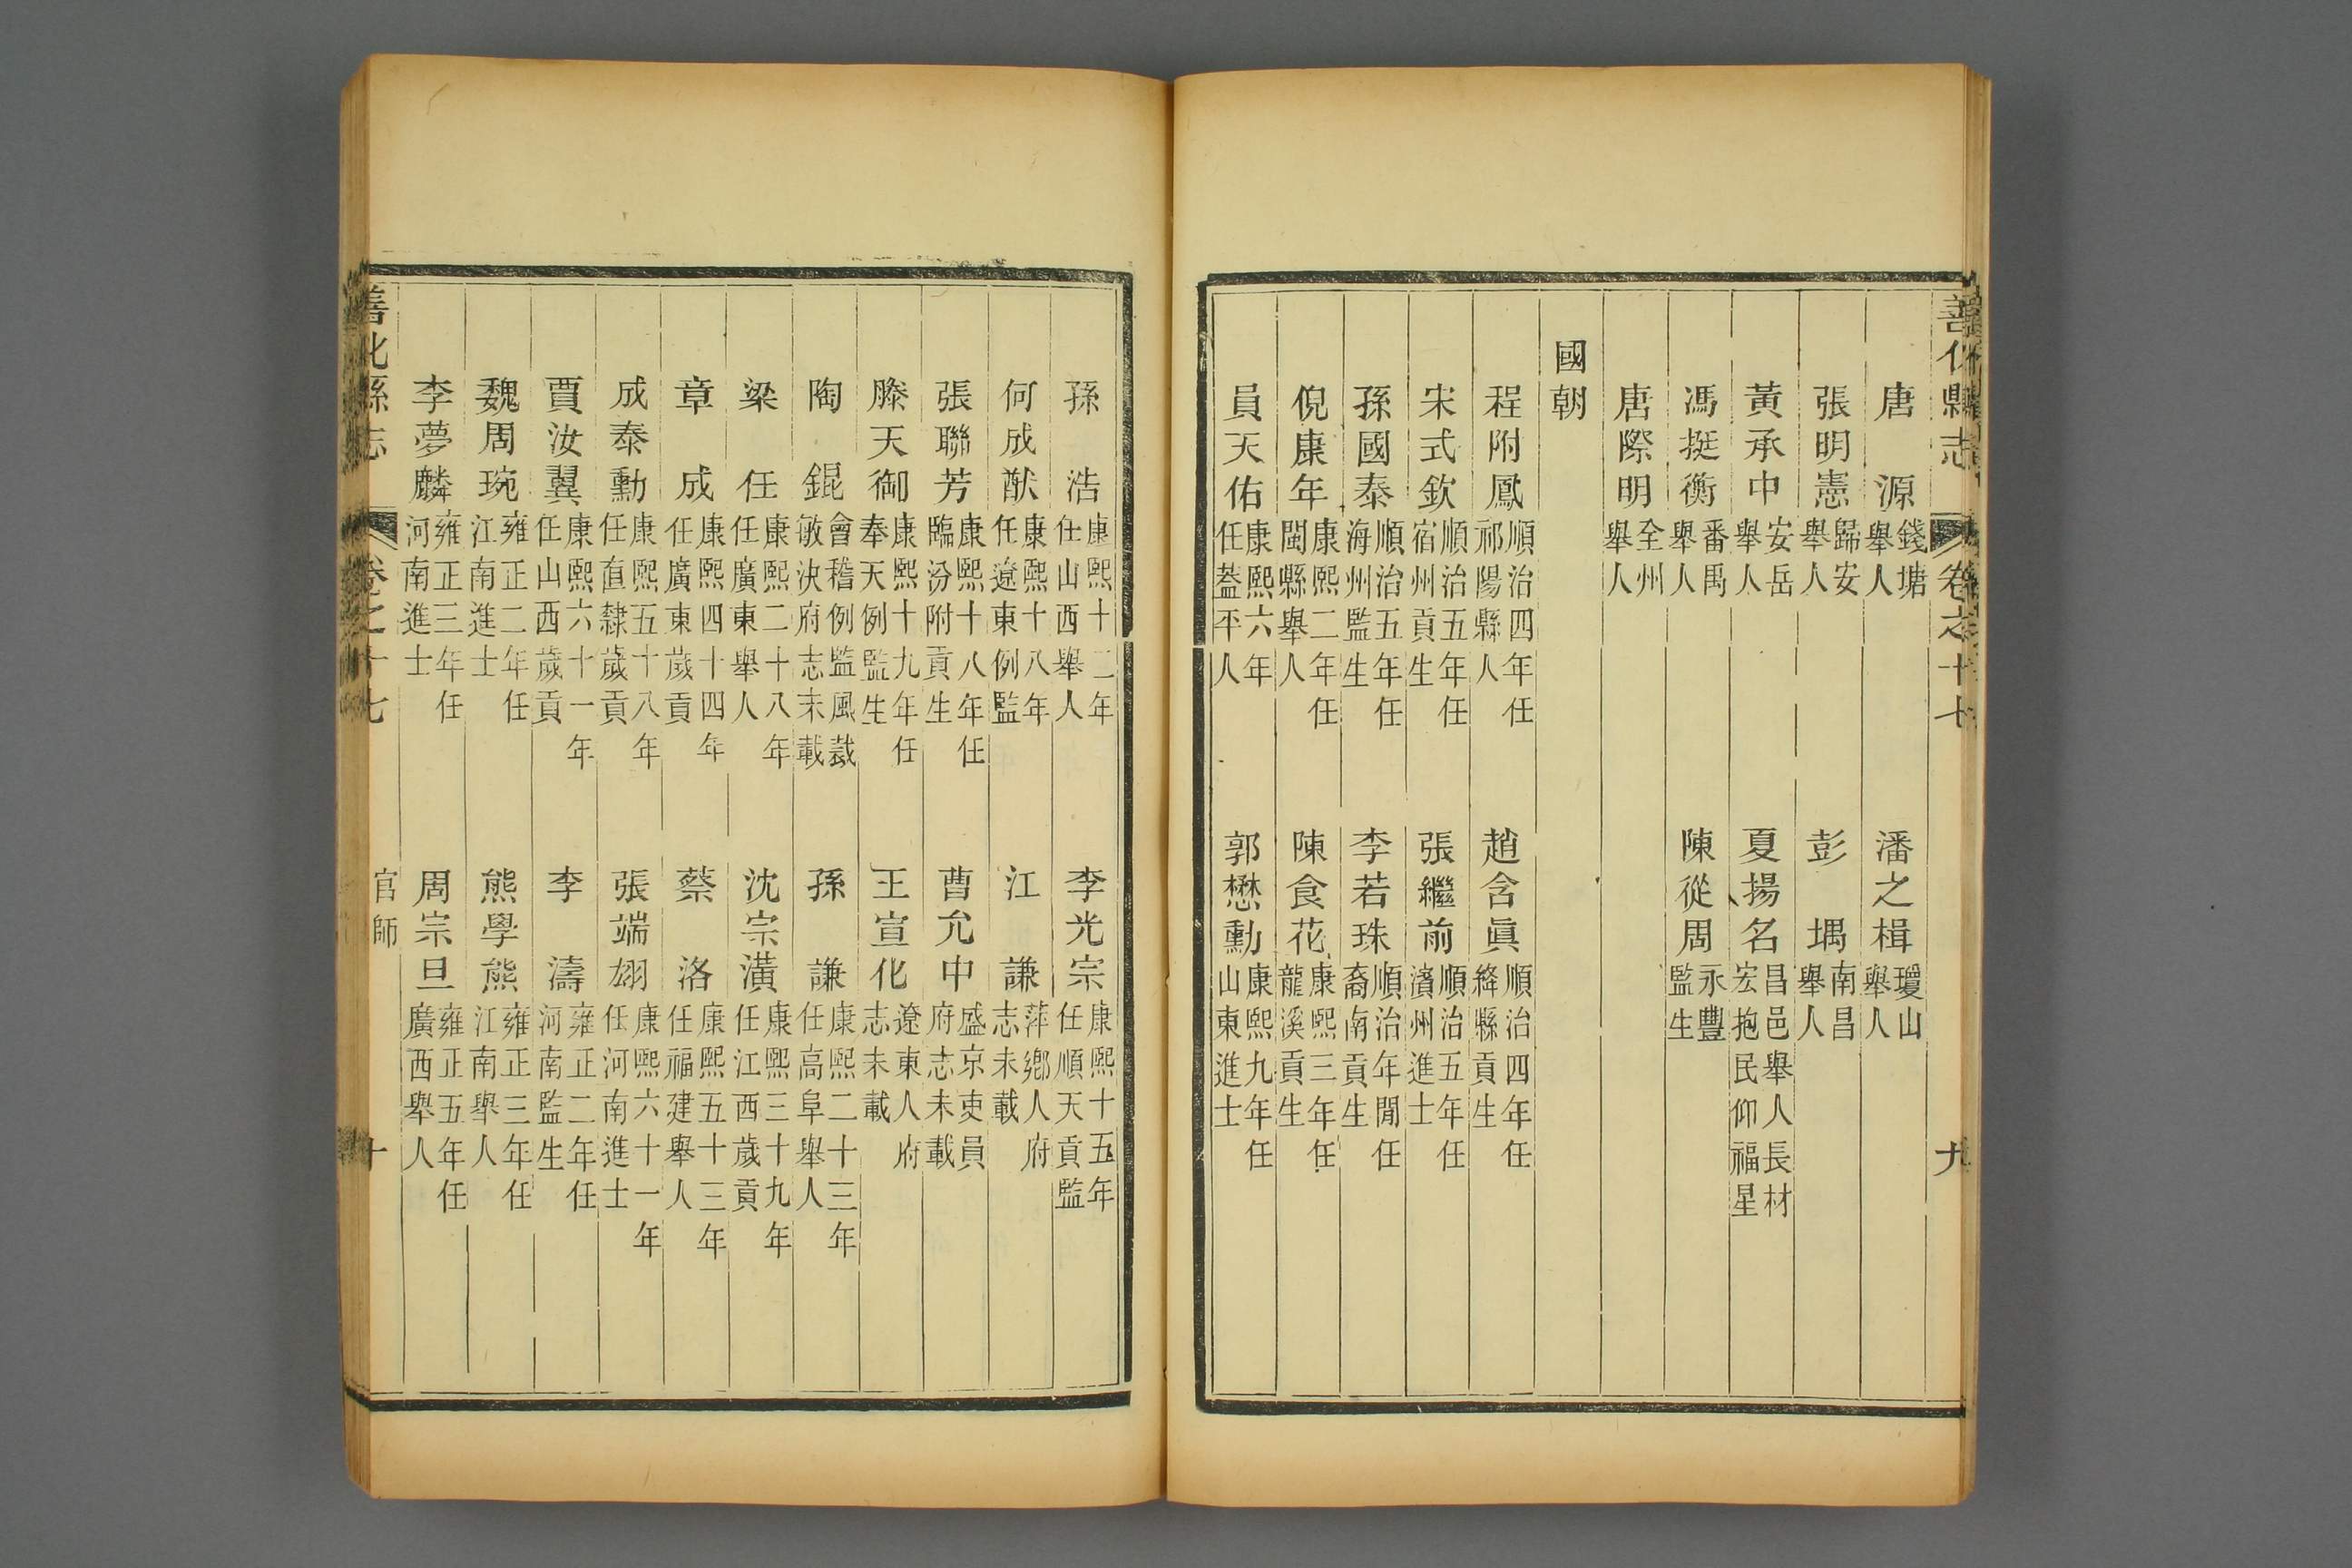 善化縣志 卷之十七 九
唐源 錢塘舉人 潘之楫 瓊山舉人
張明憲 歸安舉人 彭堣 南昌舉人
黃承中 安岳舉人 夏揚名 昌邑舉人長材宏抱民仰福星
馮挺衡 番禺舉人 陳從周 永豐監生
唐際明 全州舉人
國朝
程附鳳 順治四年任祁陽縣人 趙含眞 順治四年任絳縣貢生
宋式欽 順治五年任宿州貢生 張繼前 順治五年任濱州進士
孫國泰 順治五年任海州監生 李若珠 順治年閒任裔南貢生
倪康年 康熙二年任閩縣舉人 陳食花 康熙三年任龍溪貢生
員天佑 康熙六年任蓋平人 郭懋勳 康熙九年任山東進士
孫浩 康熙十二年任山西舉人 李光宗 康熙十五年任順天貢監
何成猷 康熙十八年任遼東例監 江謙 萍鄉人府志未載
張聯芳 康熙十八年任臨汾附貢生 曹允中 盛京吏員府志未載
滕天御 康熙十九年任奉天例監生 王宣化 遼東人府志未載
陶錕 會稽例監風裁敏決府志末載 孫謙 康熙二十三年任高阜舉人
梁任 康熙二十八年任廣東舉人 沈宗潢 康熙三十九年任江西歲貢
章成 康熙四十四年任廣東歲貢 蔡洛 康熙五十三年任福建舉人
成泰勳 康熙五十八年任直隸歲貢 張端翃 康熙六十一年任河南進士
賈汝翼 康熙六十一年任山西歲貢 李濤 雍正二年任河南監生
魏周琬 雍正二年任江南進士 熊學熊 雍正三年任江南舉人
李夢麟 雍正三年任河南進士 周宗旦 雍正五年任廣西舉人
善化縣志 卷之十七 官師 十